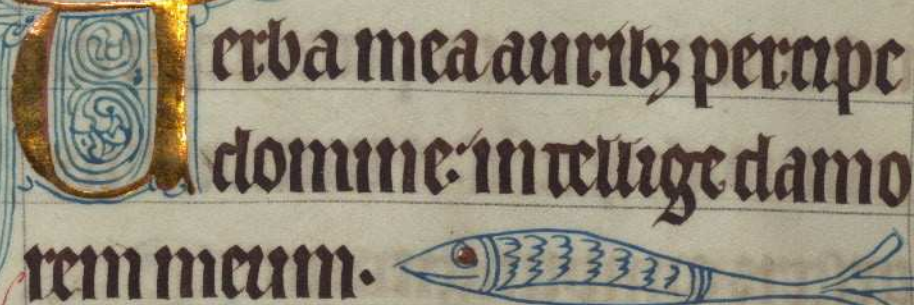 Uerba mea aurib; percipe
domine: intellige clamo
rem meum.